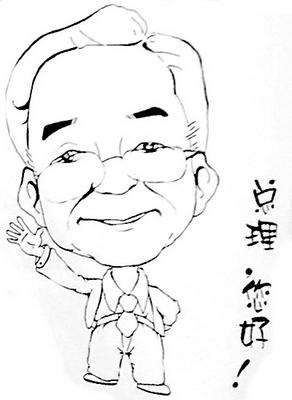 总理您好！